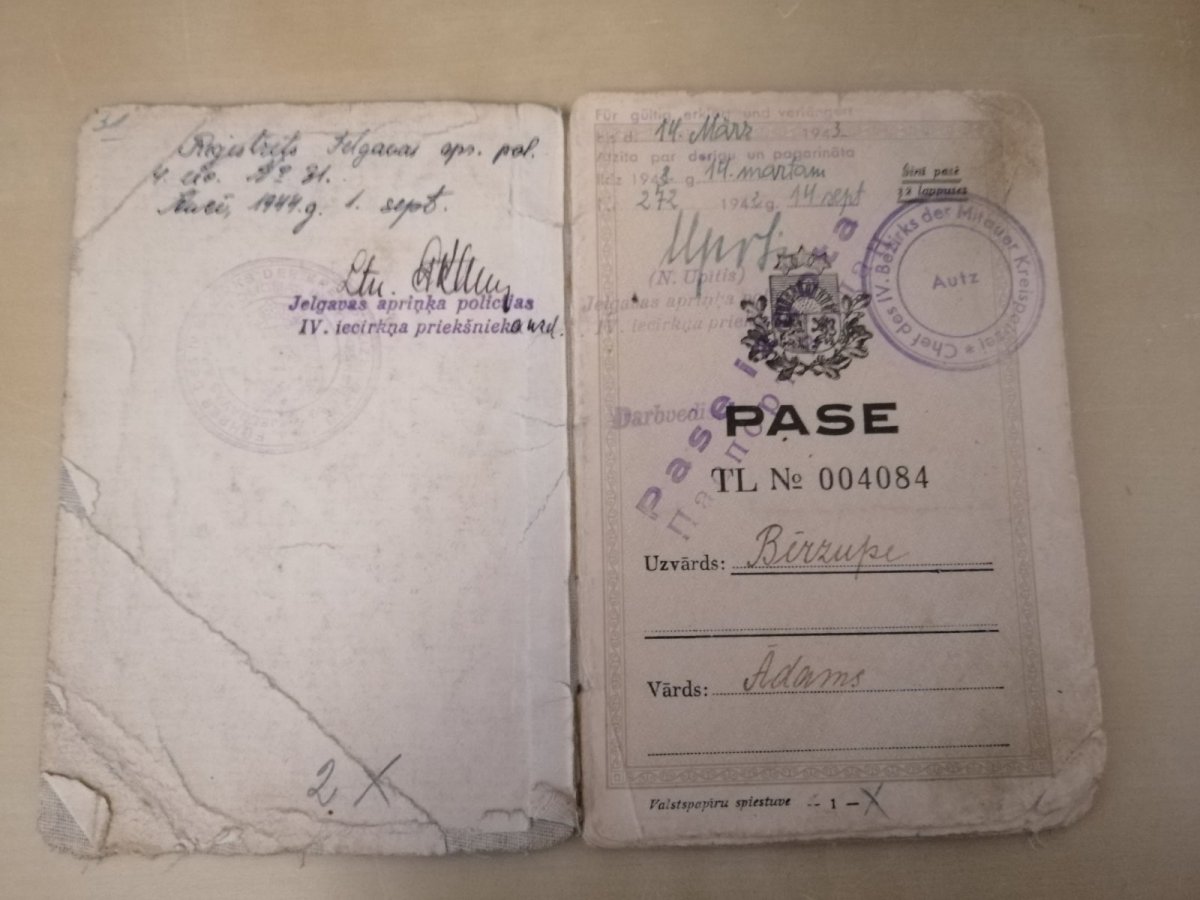 31
Reģistrēts Jelgavas apr. pol.
4. iec. № 31.
1944.g. 1. sept.
Ltn.
Jelgavas apriņķa policijas
IV. iecirkņa priekšnieka
Für gültig erklärt und verlängert
bis d. 14. März 1943.
Atzīta par derīgu un pagarināta
līdz 1943 g. 14. martam
Nr. 272 1942 g. 14 sept
Šinī pasē
32 lappuses
(N. Upītis)
Jelgavas apriņķa
IV. iecirkņa priek
Chef des IV. Bezirks der Mitauer Kreispolizei *
Autz
Pase
Darbvedi
PASE
TL № 004084
Uzvārds: Bērzupe
Vārds: Ādams
2 X
Valstspapīru spiestuve — 1 — X